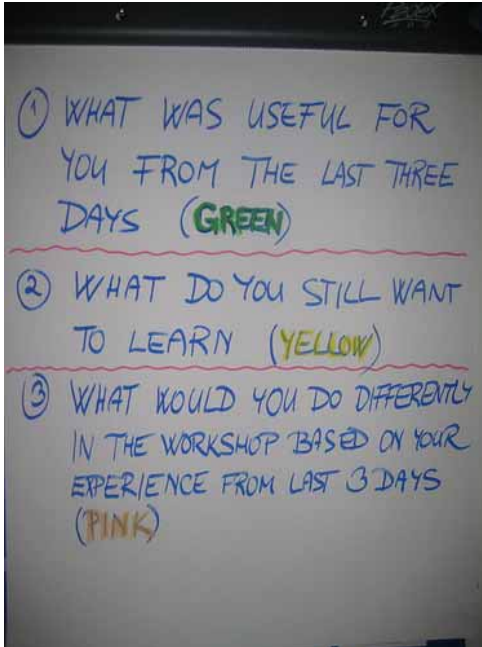 ① WHAT WAS USEFUL FOR
YOU FROM THE LAST THREE
DAYS (GREEN)
② WHAT DO YOU STILL WANT
TO LEARN (YELLOW)
③ WHAT WOULD YOU DO DIFFERENTLY
IN THE WORKSHOP BASED ON YOUR
EXPERIENCE FROM LAST 3 DAYS
(PINK)